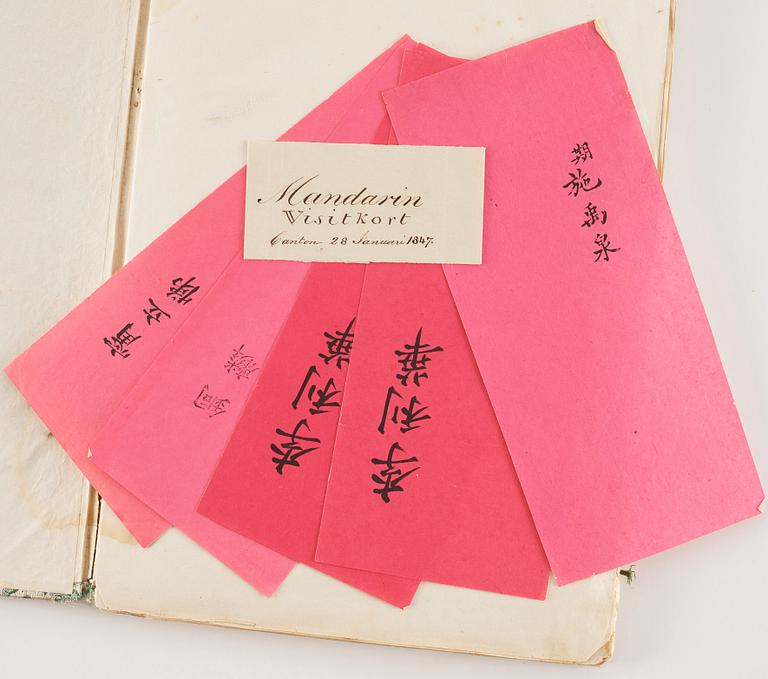 Mandarin
Visitkort
Canton 28 Januari 1847.
期
施禹泉
李利華
李利華